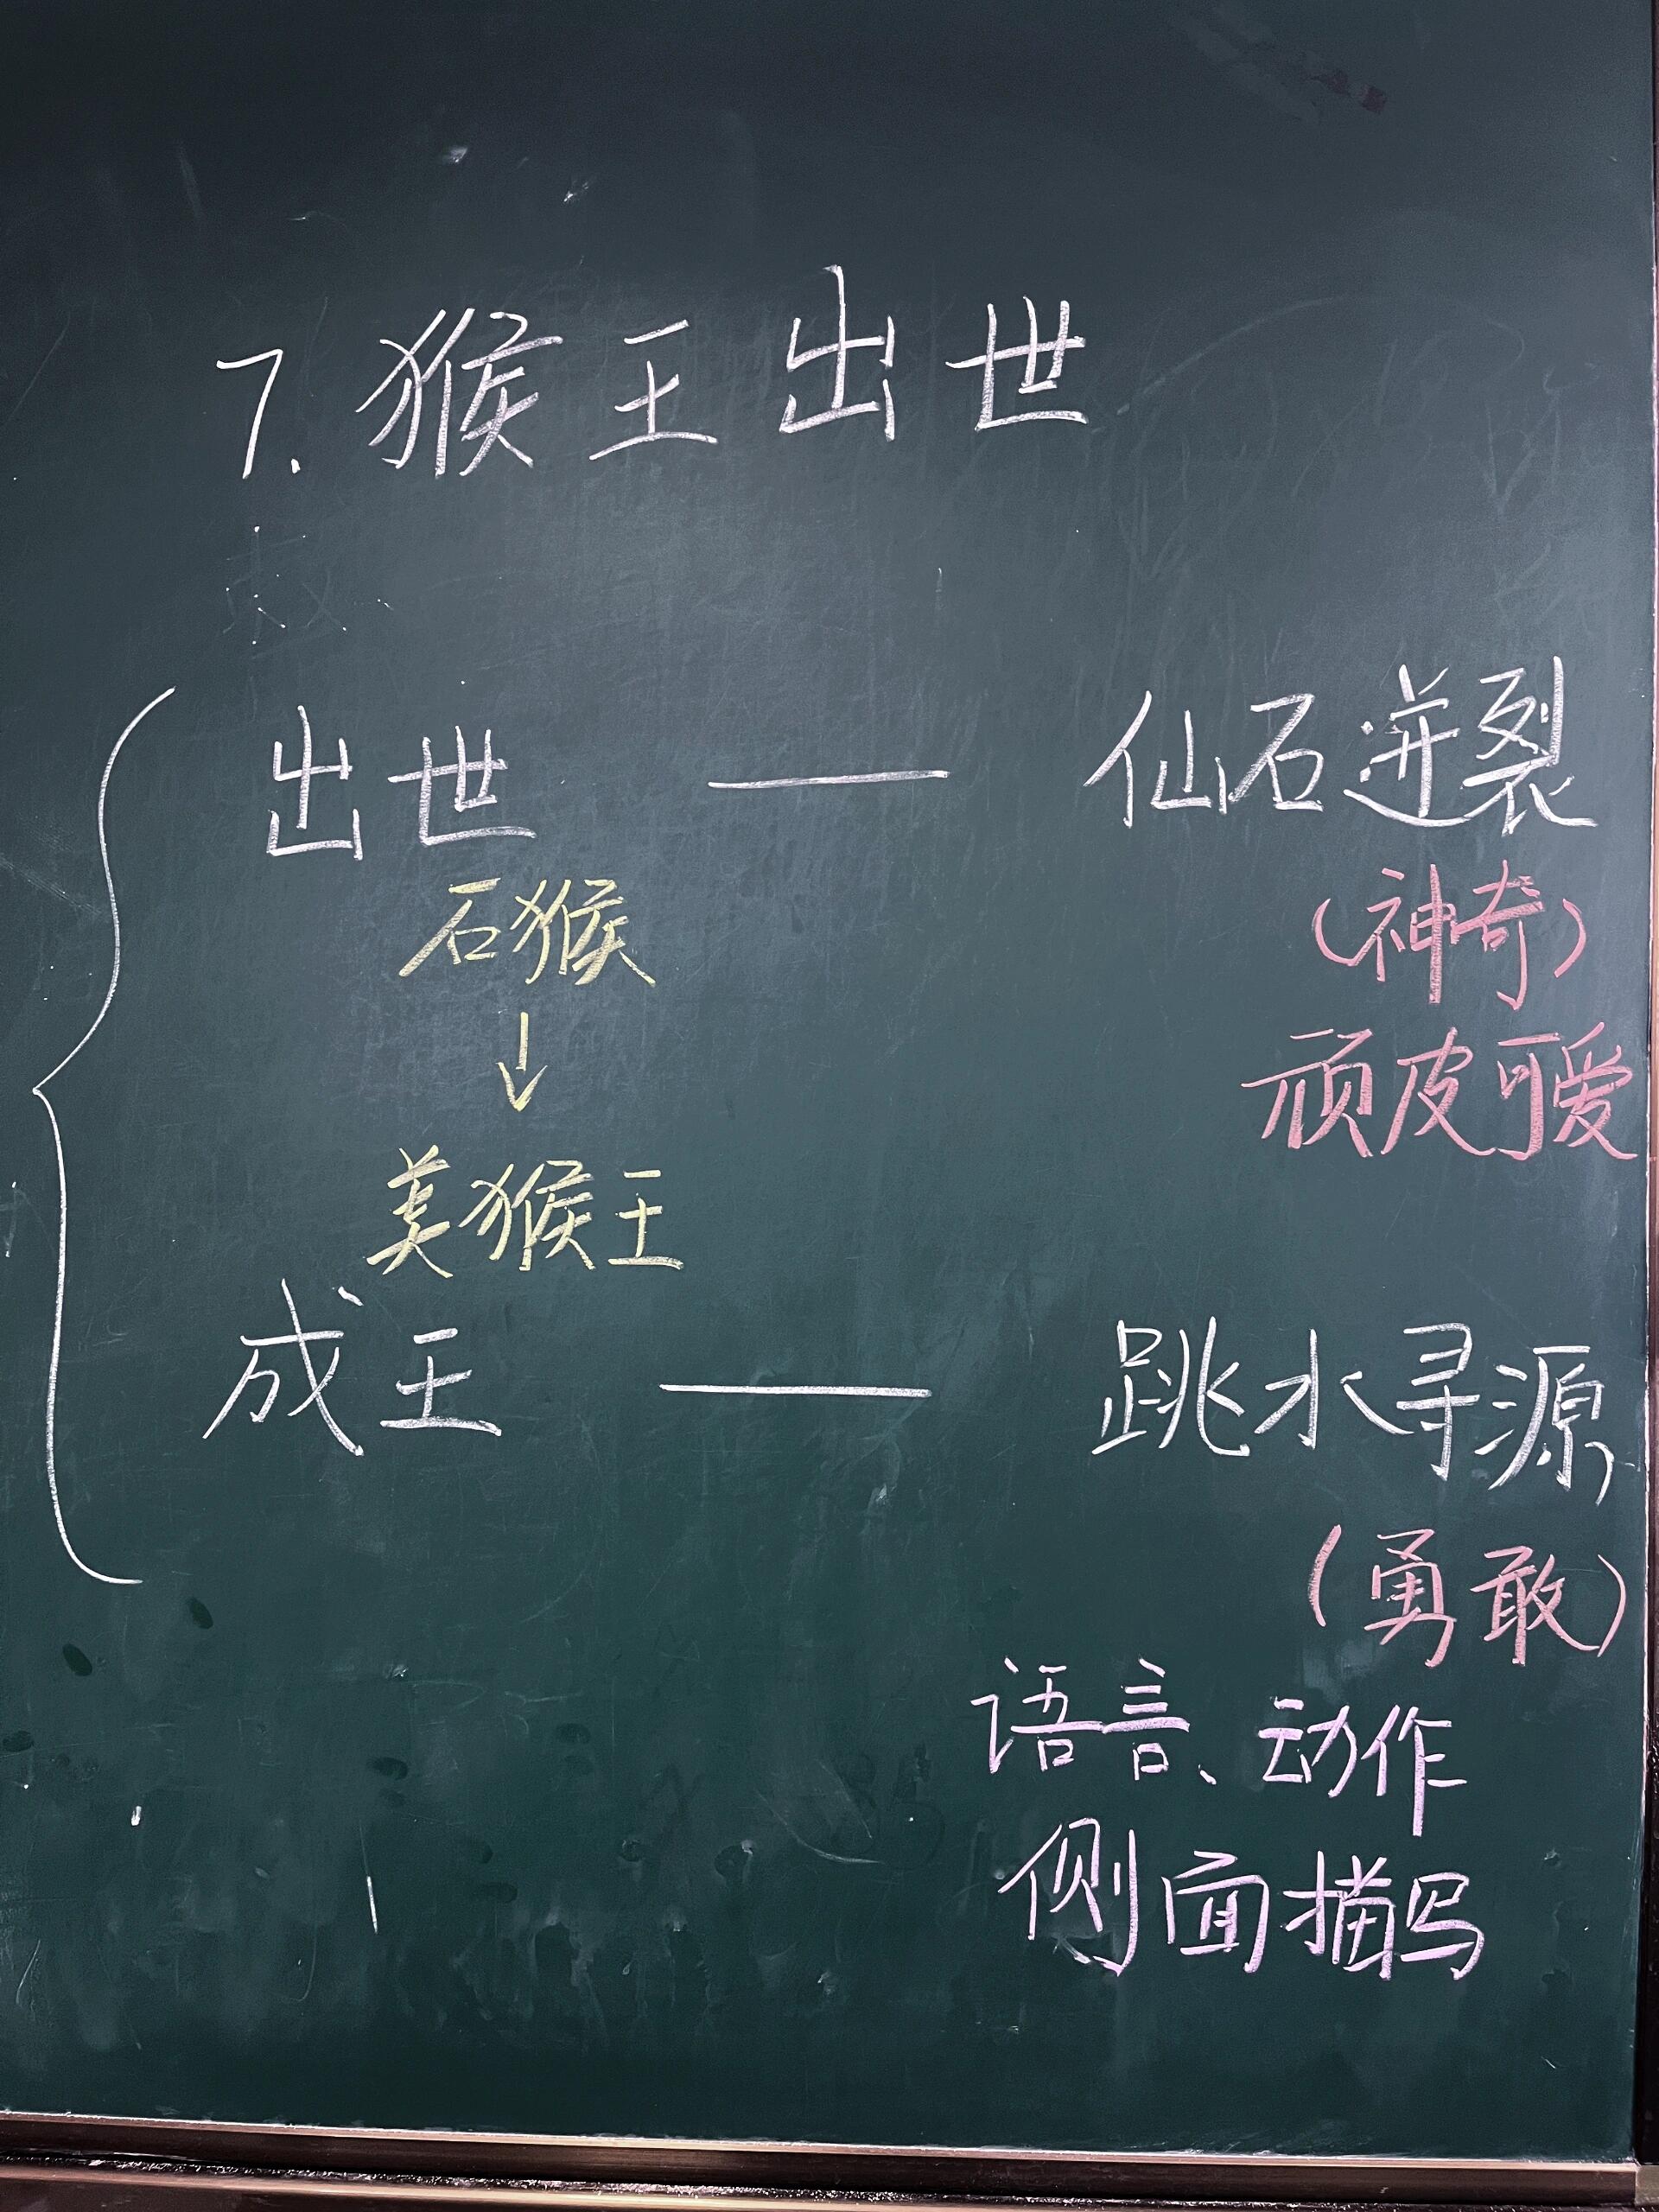 7. 猴王出世
出世 —— 仙石迸裂
石猴 (神奇)
↓ 顽皮可爱
美猴王
成王 —— 跳水寻源
(勇敢)
语言、动作
侧面描写